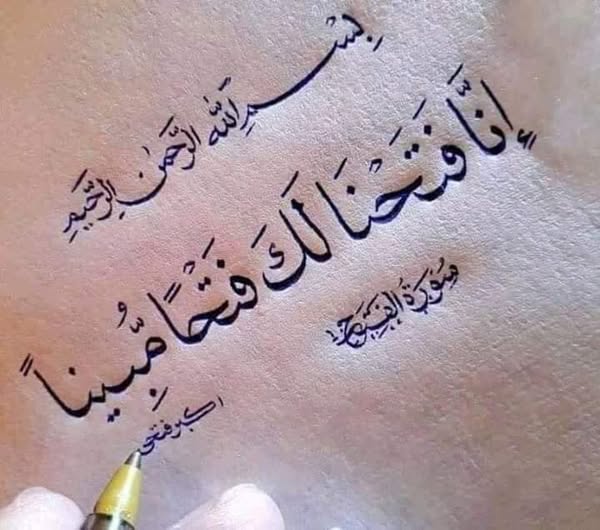 بِسْمِ اللّٰهِ الرَّحْمٰنِ الرَّحِيمِ
إِنَّا فَتَحْنَا لَكَ فَتْحًا مُّبِينًا
سُورَةُ الْفَتْحِ
اكبر فتحى